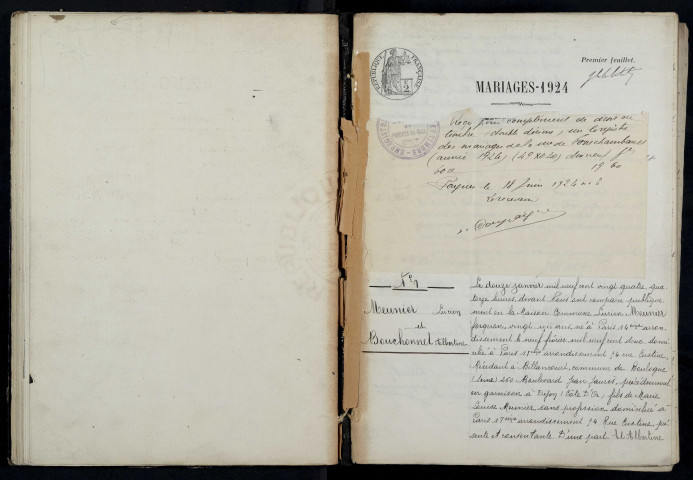 RÉPUBLIQUE FRANÇAISE
Premier feuillet.
MARIAGES - 1924
Reçu pour complément de droit de
timbre double décime, un
des mariages de la
(année 1924) (49 x 0.40) dix neuf f
60 c 19.60
le 18 Juin 1924 n° 8
Le receveur
N° 1
Meunier Lucien
et
Bouchonnet Albertine
Le douze janvier mil neuf cent vingt quatre, qua
torze heures, devant Nous ont comparu publique
ment en la maison commune Lucien Meunier
forgeron, vingt un ans, né à Paris 14ème arron
dissement le neuf février mil neuf cent deux, domi
cilié à Paris arrondissement 74 rue
Résidant à Billancourt, commune de Boulogne
(Seine) 260 Boulevard Jean Jaurès, précédemment
en garnison à Dijon (Côte d'Or) fils de Marie
Louise Meunier, sans profession domiciliée à
Paris arrondissement 74 Rue pré
sente et consentante D'une part. Et Albertine